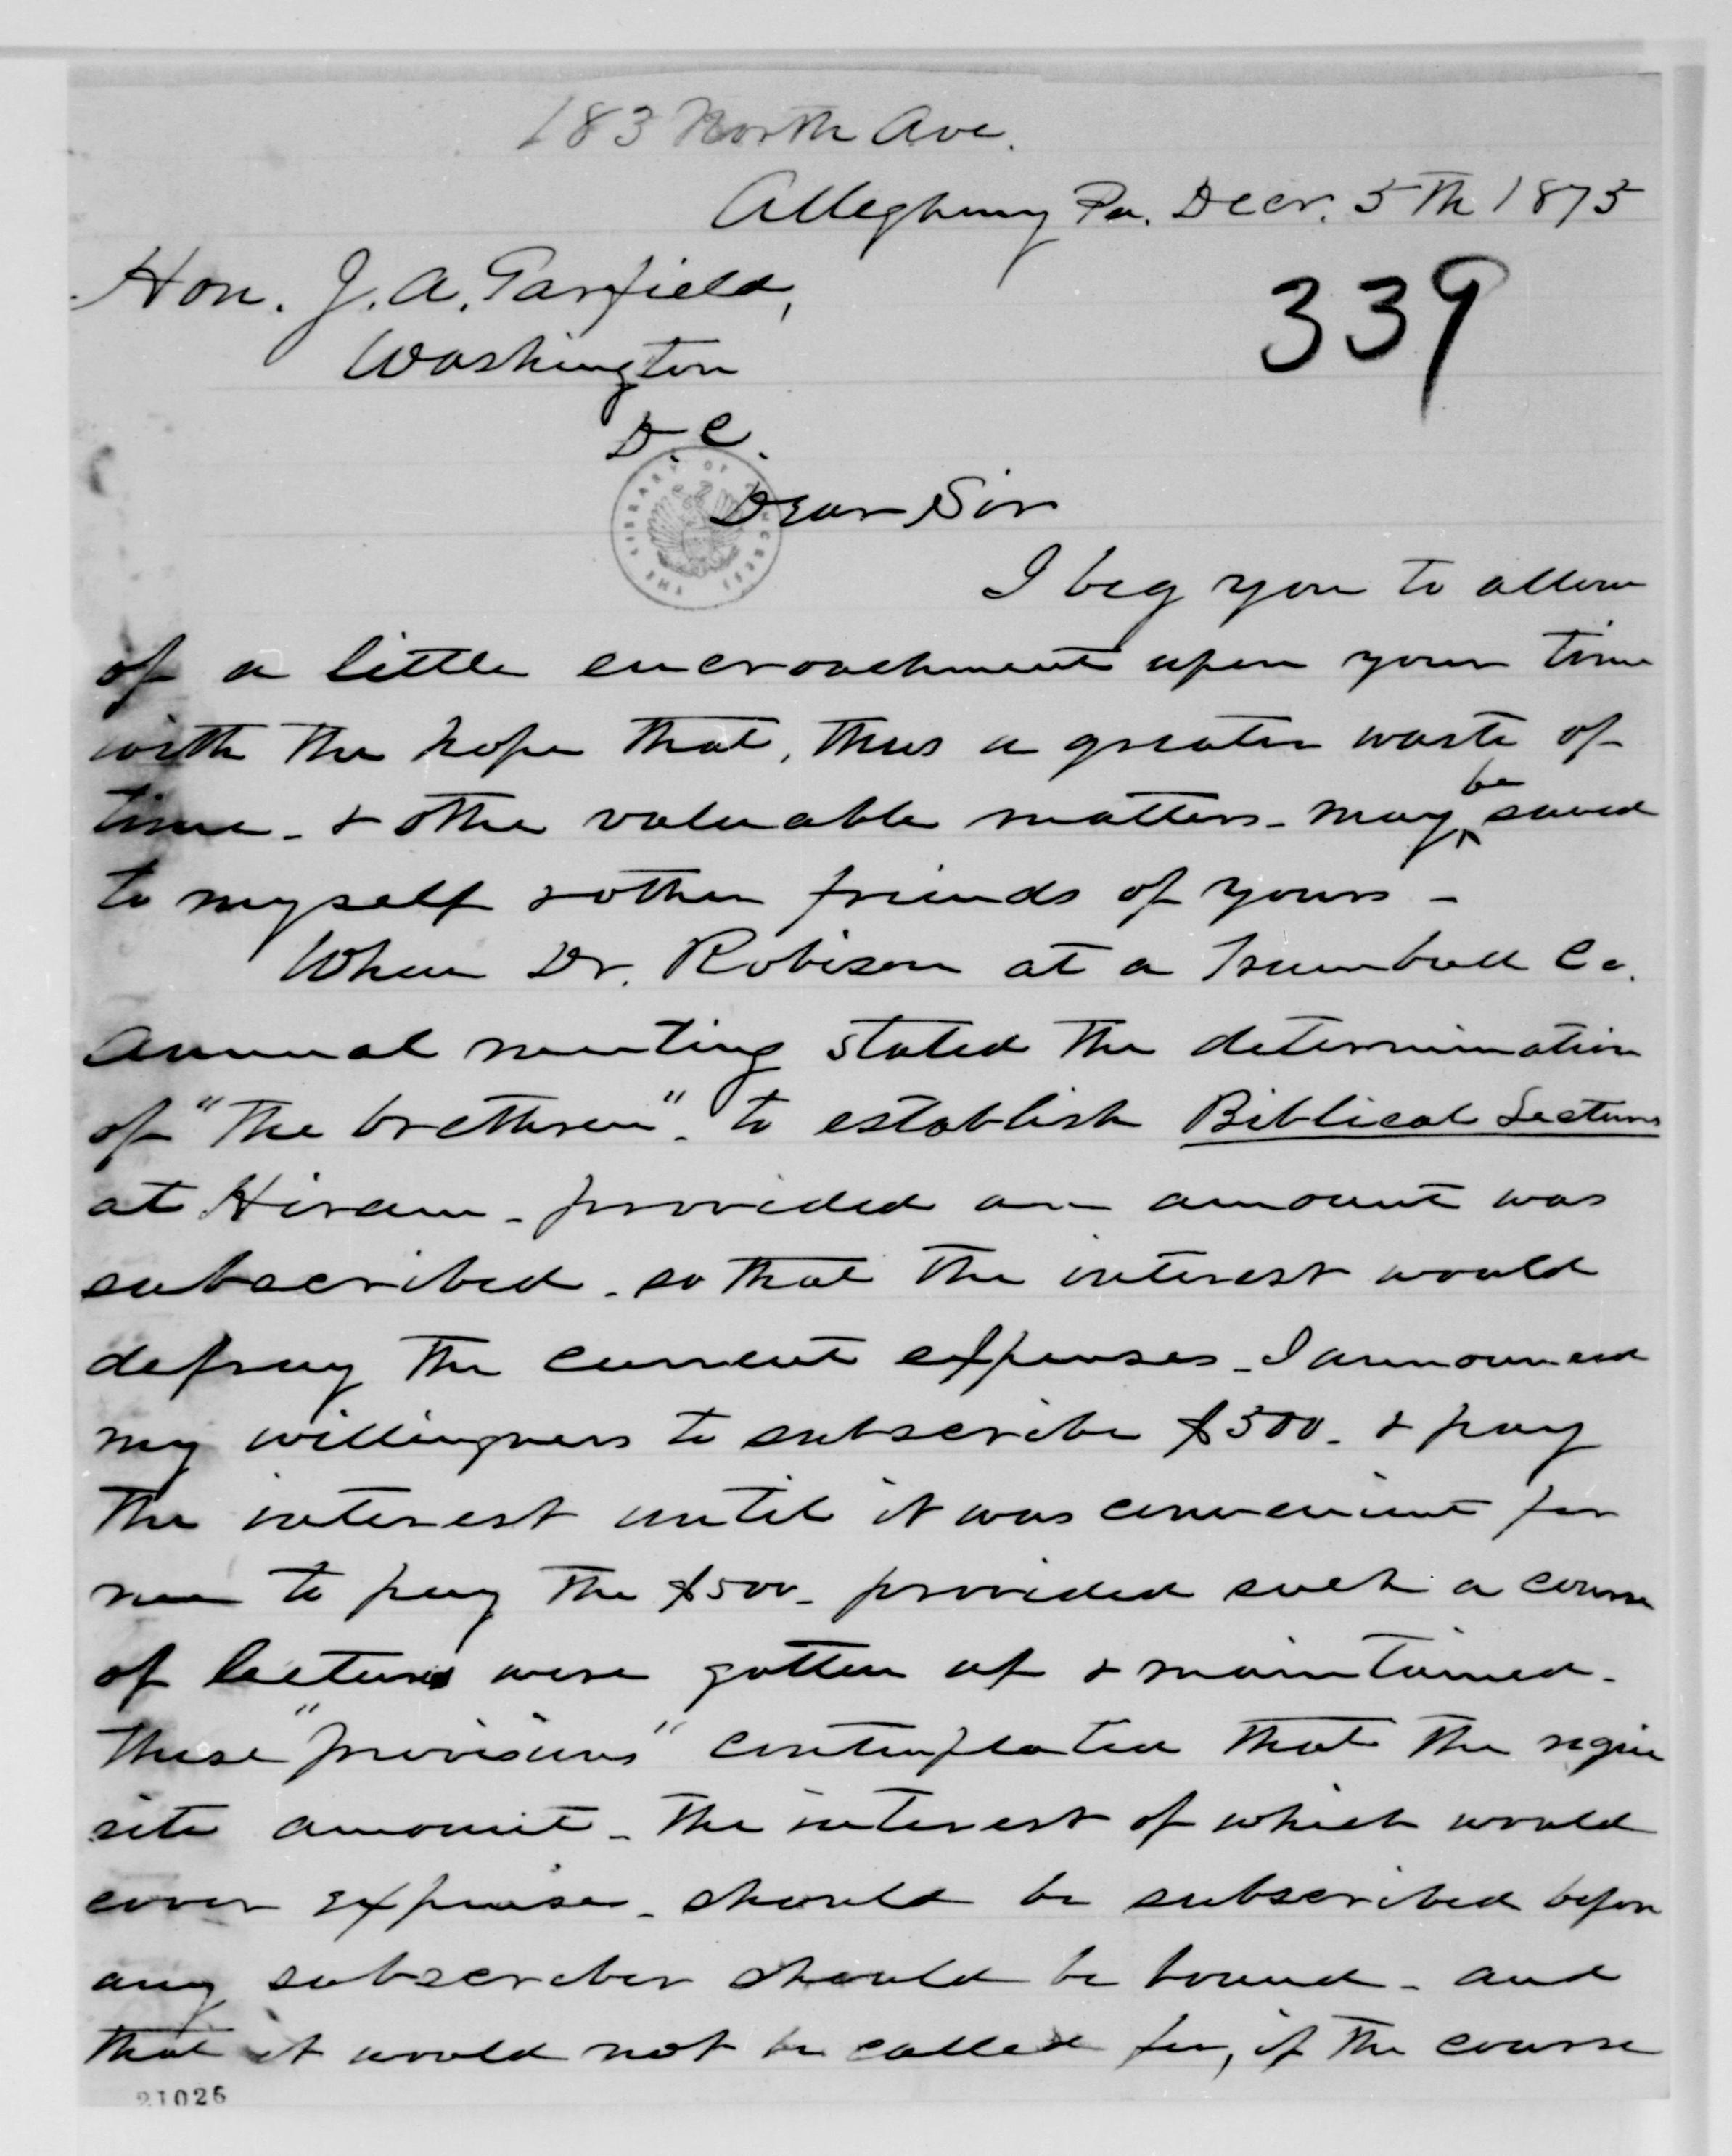 183 North Ave.
Allegheny Pa. Decr. 5th 1875
Hon. J. A. Garfield,
339
Washington
D.C.
THE LIBRARY OF CONGRESS
Dear Sir
I beg you to allow
of a little encroachment upon your time
with the hope that, thus a greater waste of
time - & other valuable matters - may be saved
to myself & other friends of yours -
When Dr. Robison at a Trumbull Co.
Annual meeting stated the determination
of "the brethren" - to establish Biblical Lectures
at Hiram - provided an amount was
subscribed - so that the interest would
defray the current expenses - I announced
my willingness to subscribe $500 - & pay
the interest until it was convenient for
me to pay the $500 - provided such a course
of lectures were gotten up & maintained -
These "provisions" contemplated that the requi
site amount - the interest of which would
cover expenses - should be subscribed before
any subscriber should be bound - and
that it would not be called for, if the course
21026